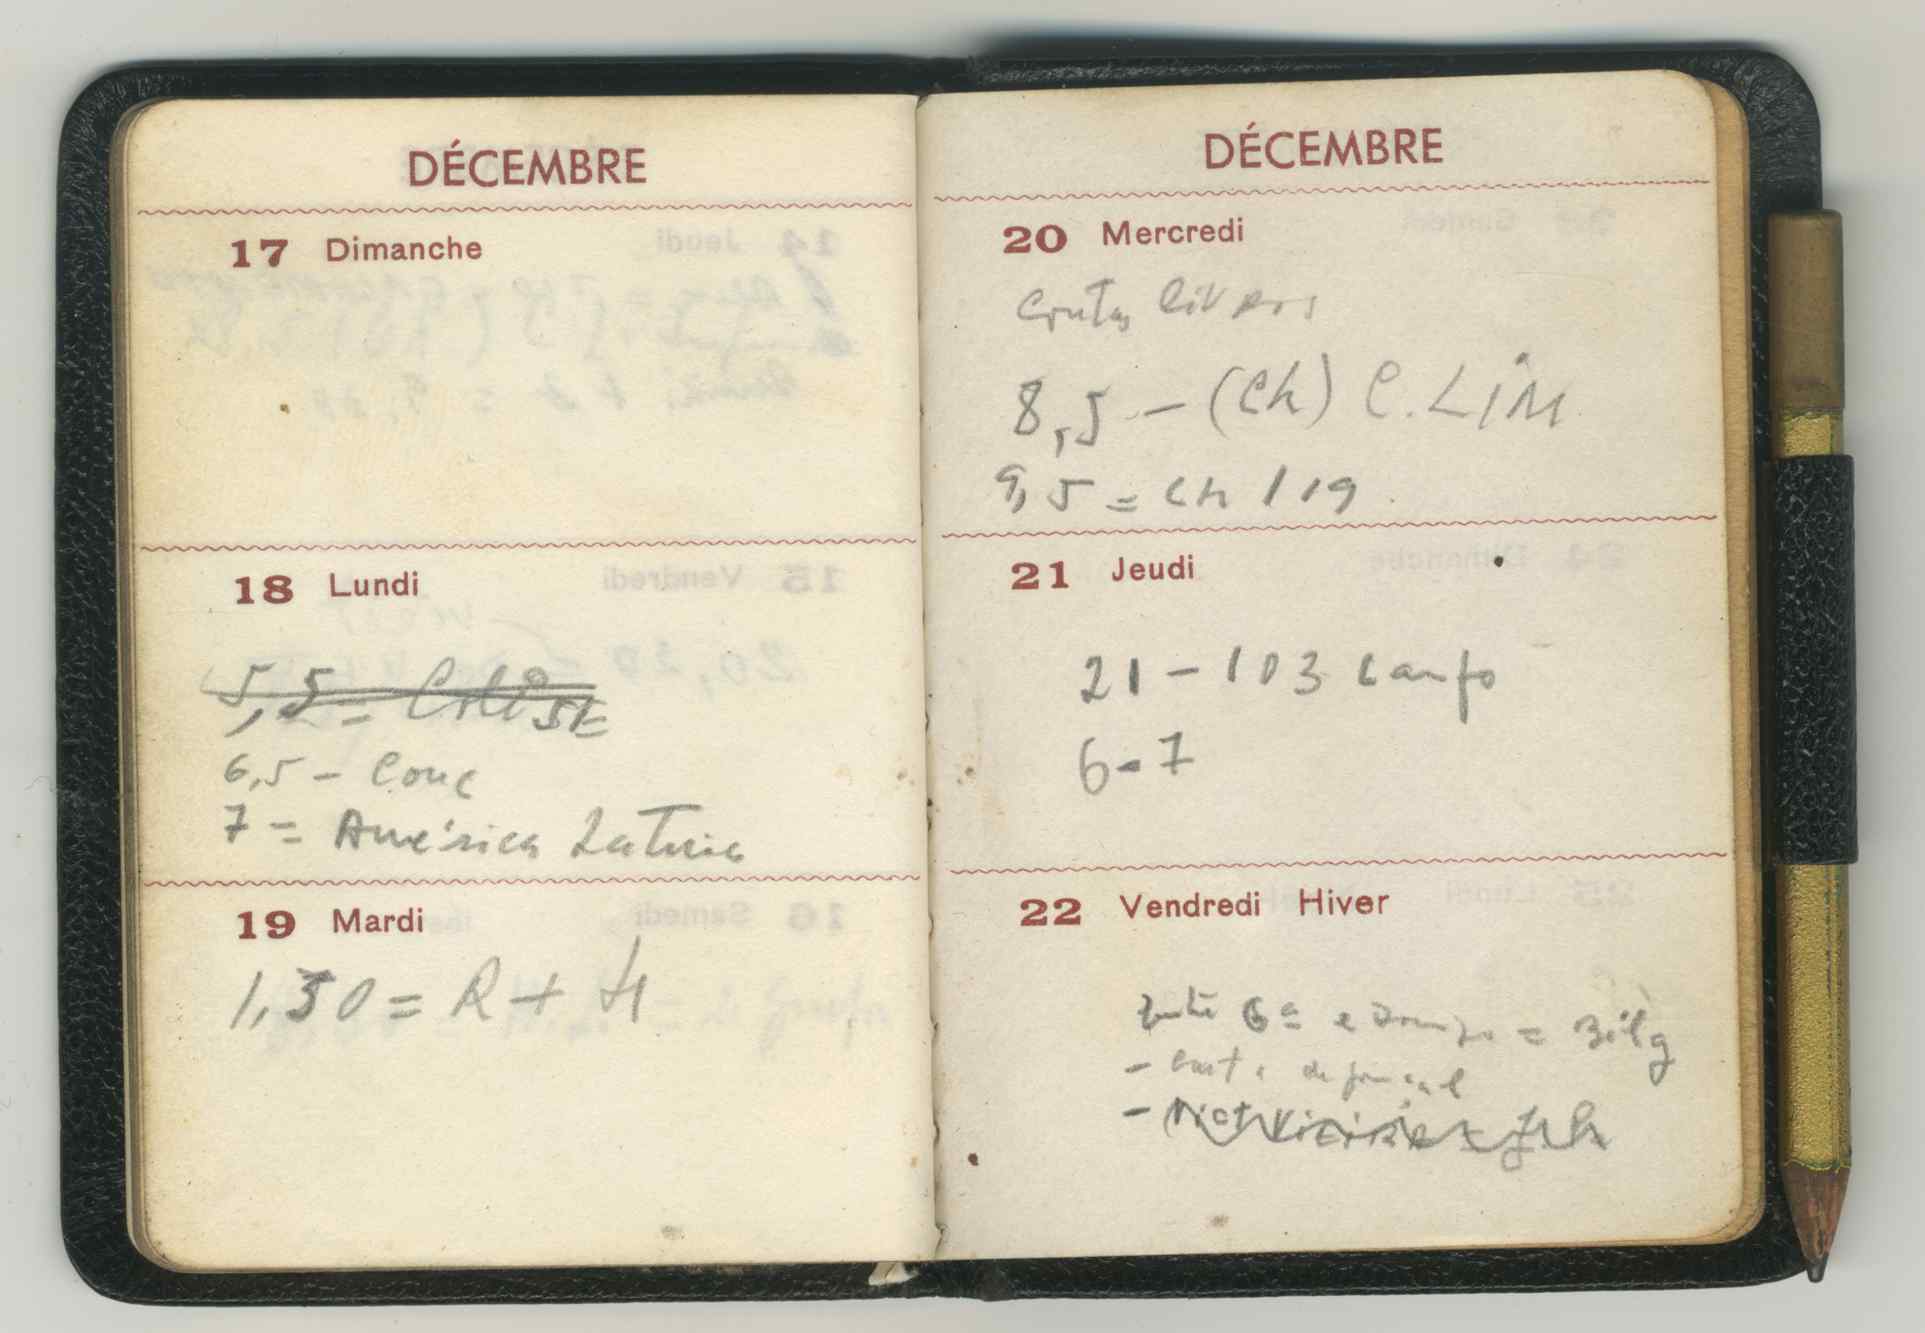 DÉCEMBRE
17 Dimanche
18 Lundi
5,5 =
6,5 - Conc
7 = América Latina
19 Mardi
1,30 = R + H
DÉCEMBRE
20 Mercredi
Contas Livros
8,5 - (Ch) C. LIM
9,5 = Ch 119
21 Jeudi
21 - 103 Campo
6 - 7
22 Vendredi Hiver
6ª e =
-
-